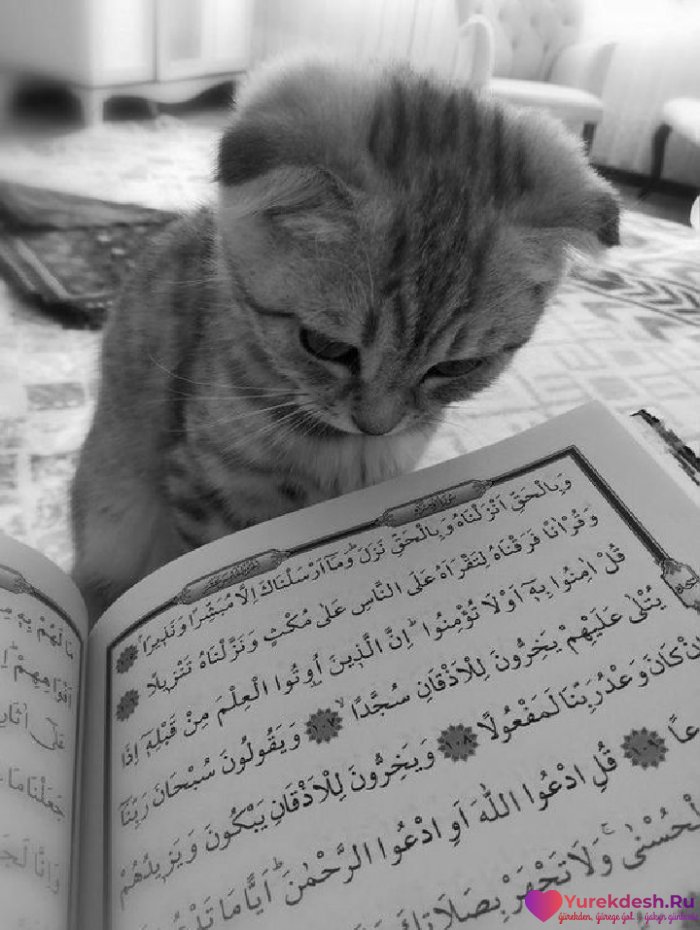 وَبِالْحَقِّ اَنْزَلْنَاهُ وَبِالْحَقِّ نَزَلَ وَمَٓا اَرْسَلْنَاكَ اِلَّا مُبَشِّرًا وَنَذ۪يرًا
وَقُرْاٰنًا فَرَقْنَاهُ لِتَقْرَاَهُ عَلَى النَّاسِ عَلٰى مُكْثٍ وَنَزَّلْنَاهُ تَنْز۪يلًا
قُلْ اٰمِنُوا بِه۪ٓ اَوْ لَا تُؤْمِنُوا اِنَّ الَّذ۪ينَ اُو۫تُوا الْعِلْمَ مِنْ قَبْلِه۪ٓ اِذَا
يُتْلٰى عَلَيْهِمْ يَخِرُّونَ لِلْاَذْقَانِ سُجَّدًا ١٠٧ وَيَقُولُونَ سُبْحَانَ رَبِّنَٓا
اِنْ كَانَ وَعْدُ رَبِّنَا لَمَفْعُولًا ١٠٨ وَيَخِرُّونَ لِلْاَذْقَانِ يَبْكُونَ وَيَز۪يدُهُمْ
١٠٩ قُلِ ادْعُوا اللّٰهَ اَوِ ادْعُوا الرَّحْمٰنَ اَيًّا مَا
الْحُسْنٰى وَلَا تَجْهَرْ بِصَلَاتِكَ
مَا لَهُمْ بِه۪ مِنْ
اَفْوَاهِهِمْ
عَلٰٓى اٰثَارِ
جَعَلْنَا مَا
وَاِنَّا لَجَا
Yurekdesh.Ru